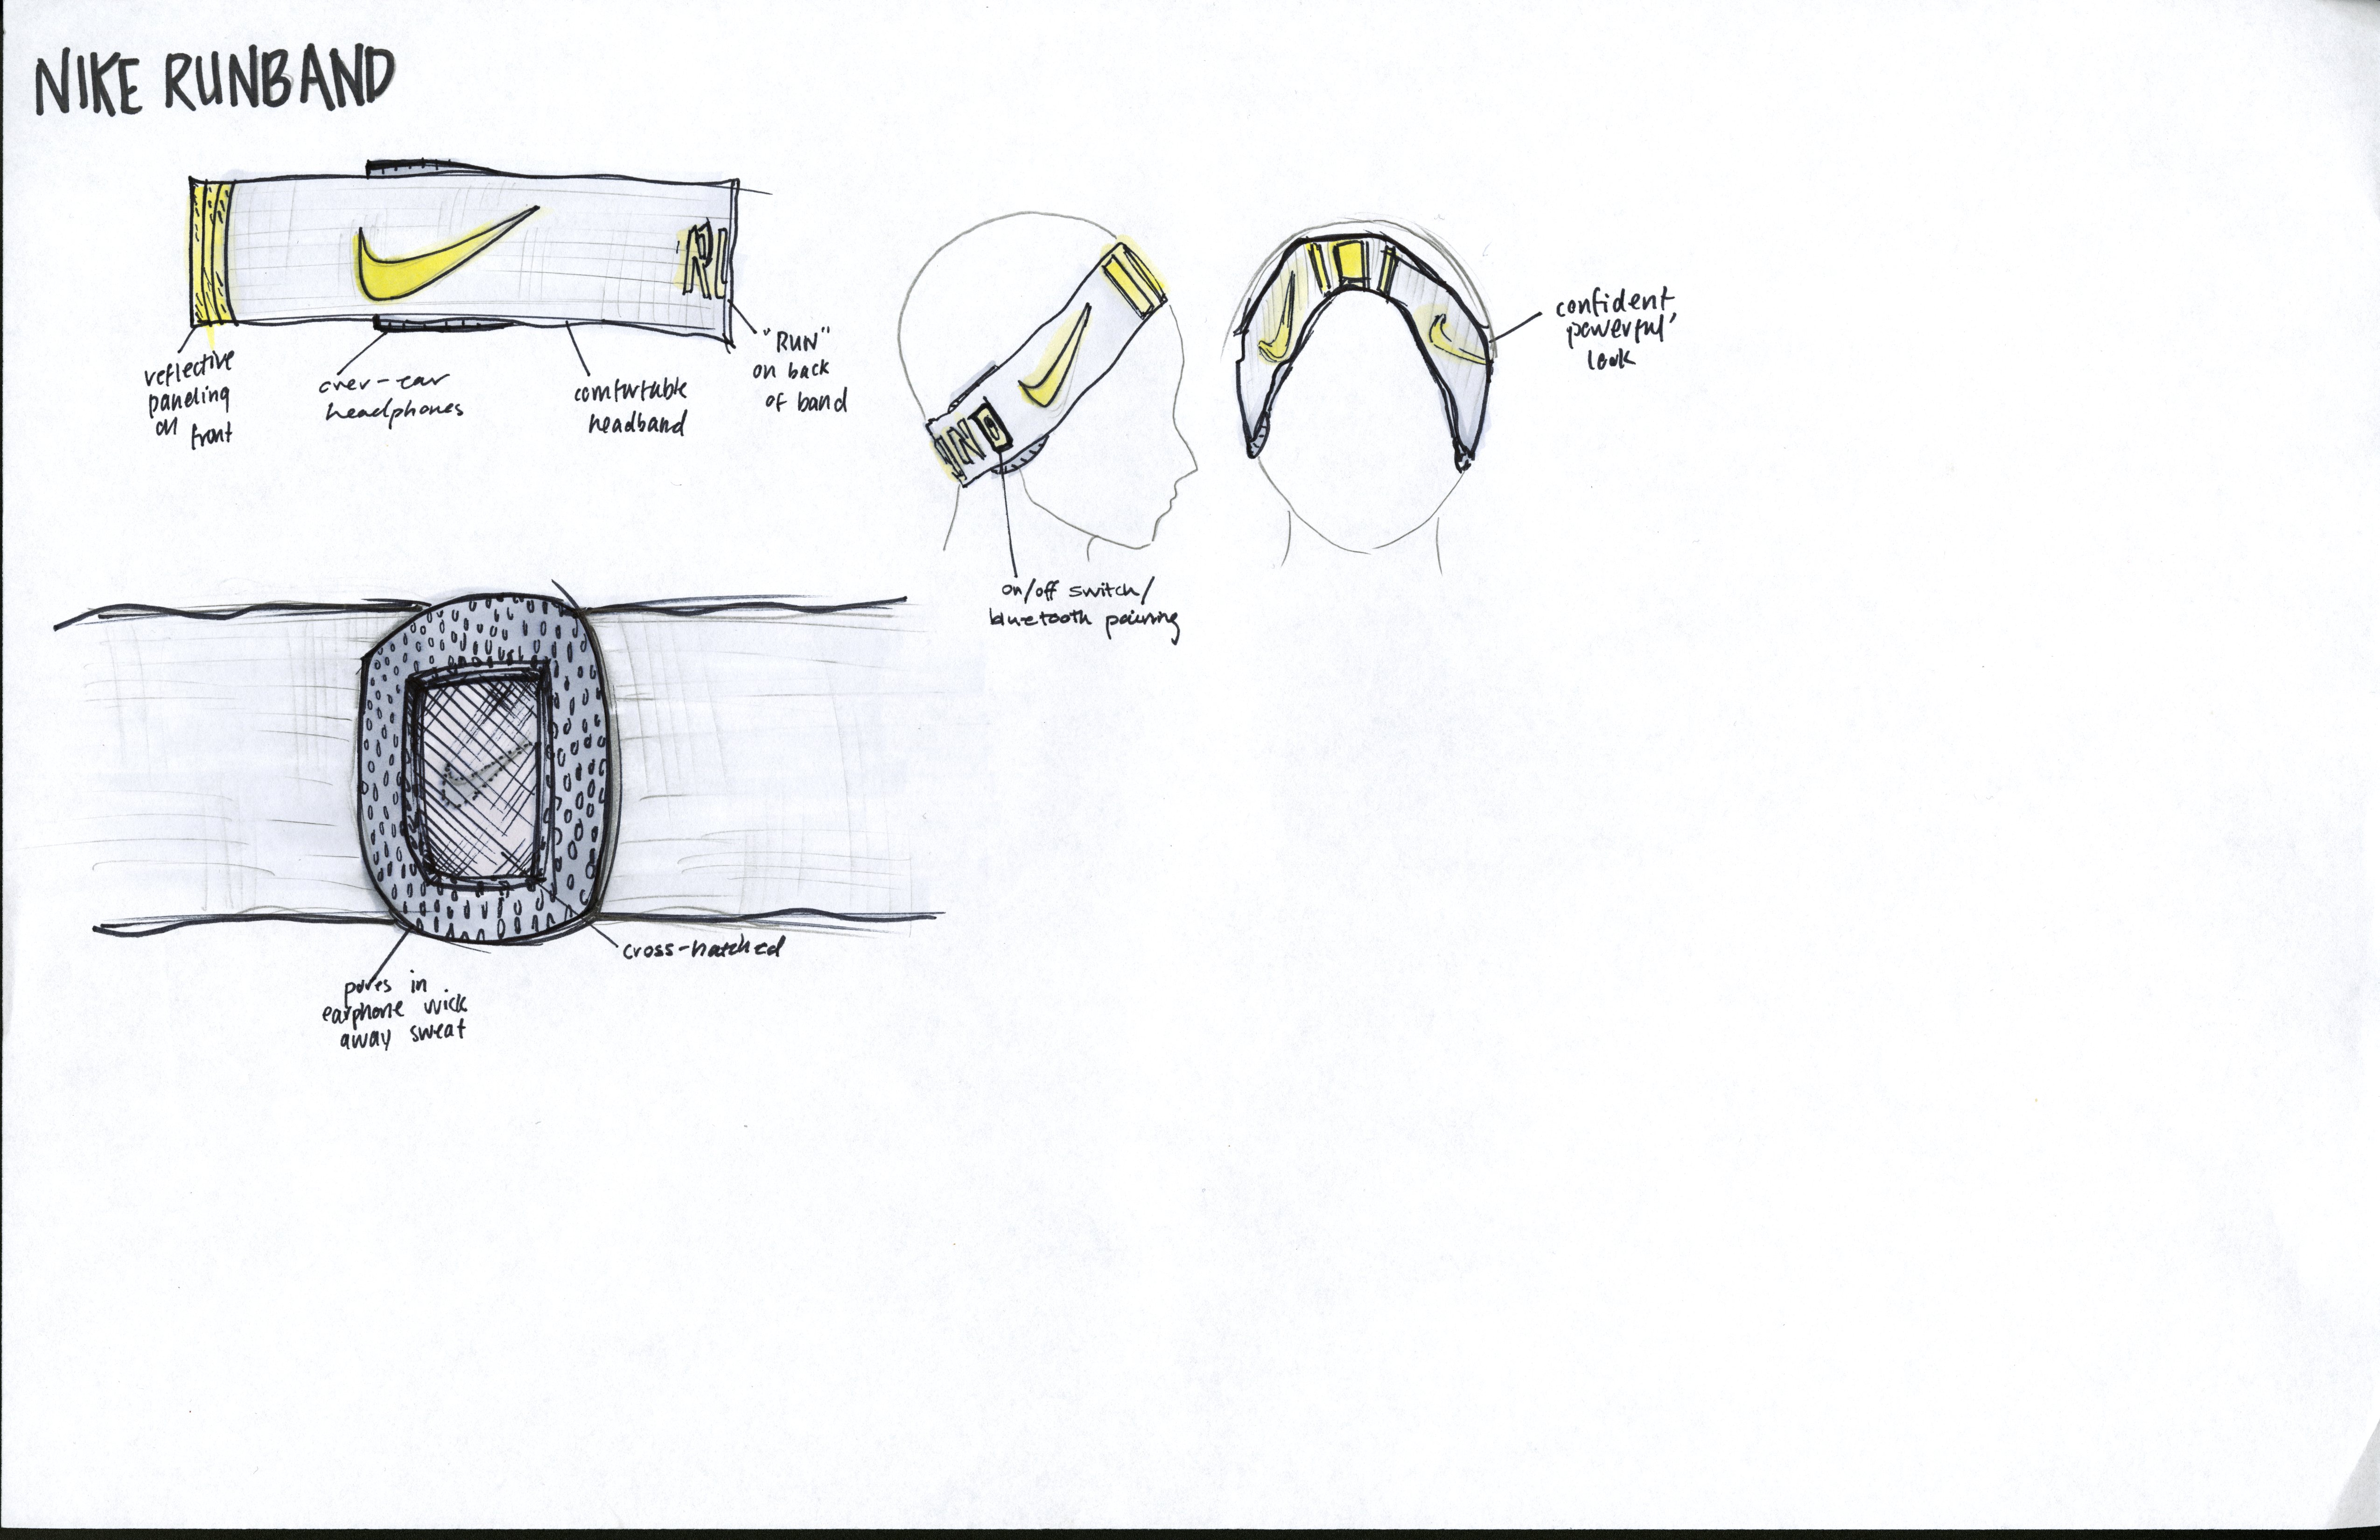 NIKE RUNBAND
RU
reflective
paneling
on front
over-ear
headphones
comfortable
headband
"RUN"
on back
of band
IN
on/off switch/
bluetooth pairing
confident,
powerful
look
cross-hatched
pores in
earphone wick
away sweat